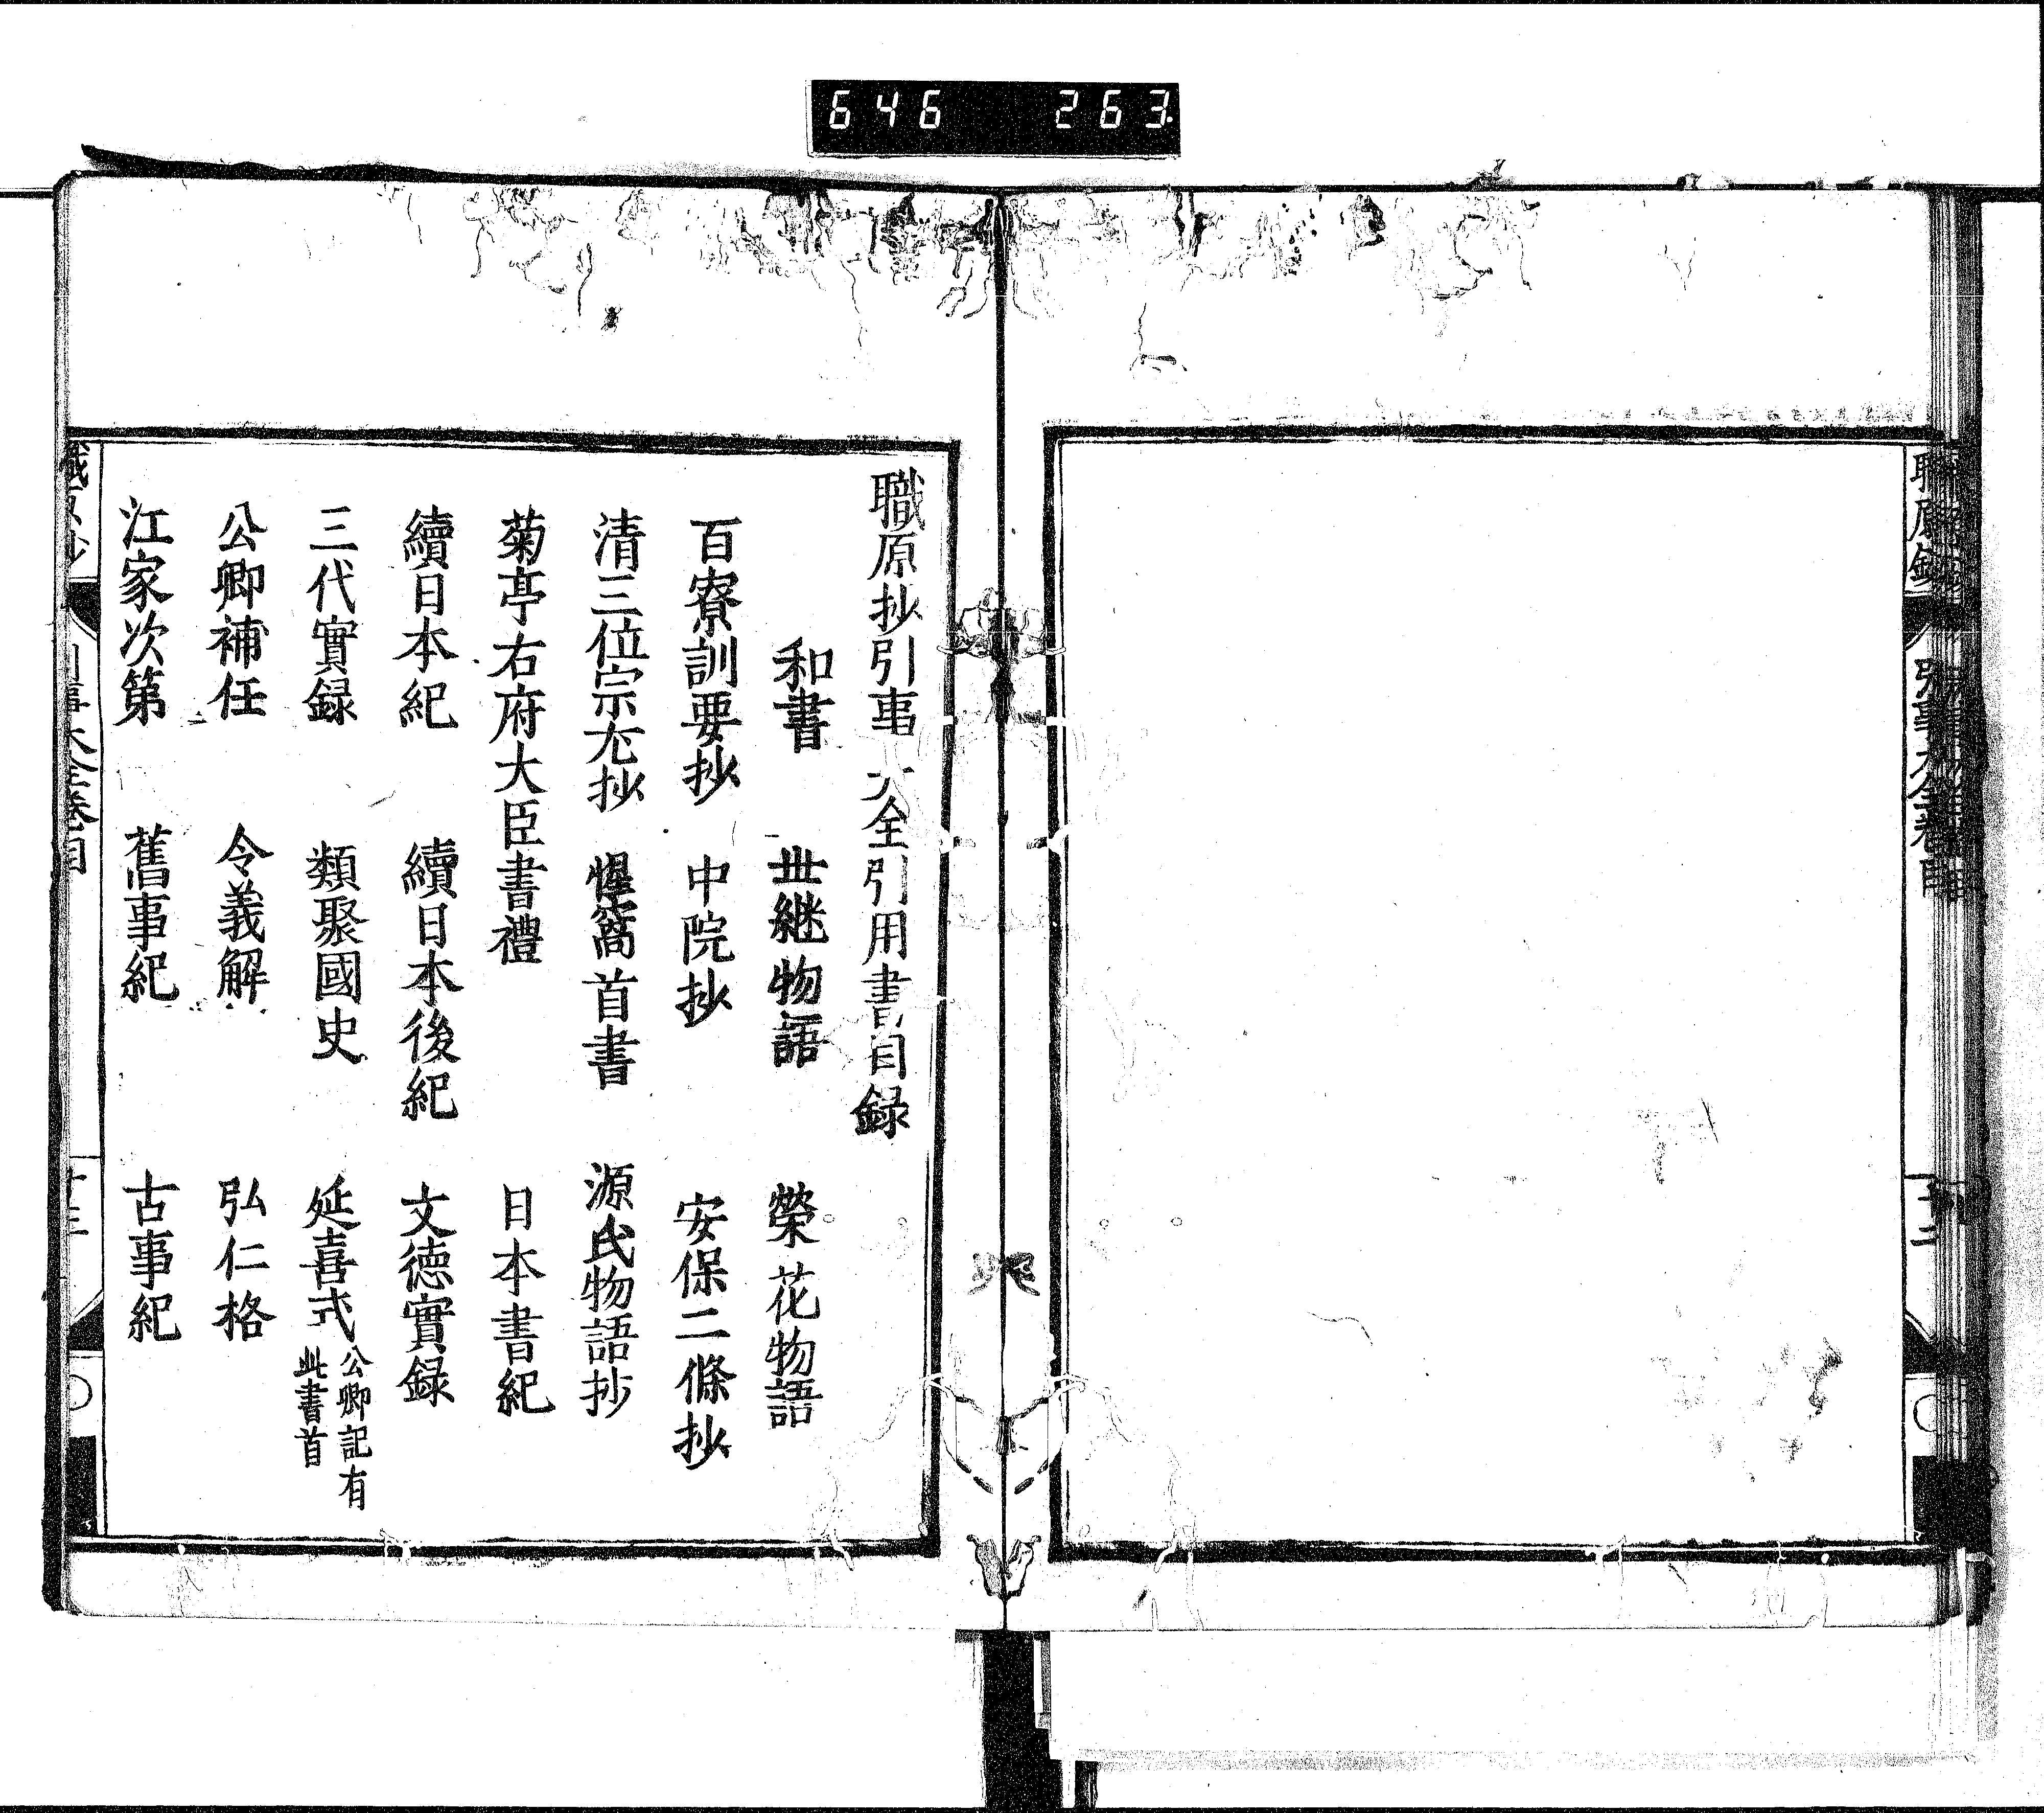 646 263
職原抄引事大全引用書目録
和書 丗継物語 榮花物語
百寮訓要抄 中院抄 安保二條抄
清三位宗尤抄 惺窩首書 源氏物語抄
菊亭右府大臣書禮 日本書紀
續日本紀 續日本後紀 文德實録
三代實録 類聚國史 延喜式 公卿記有此書首
公卿補任 令義解 弘仁格
江家次第 舊事紀 古事紀